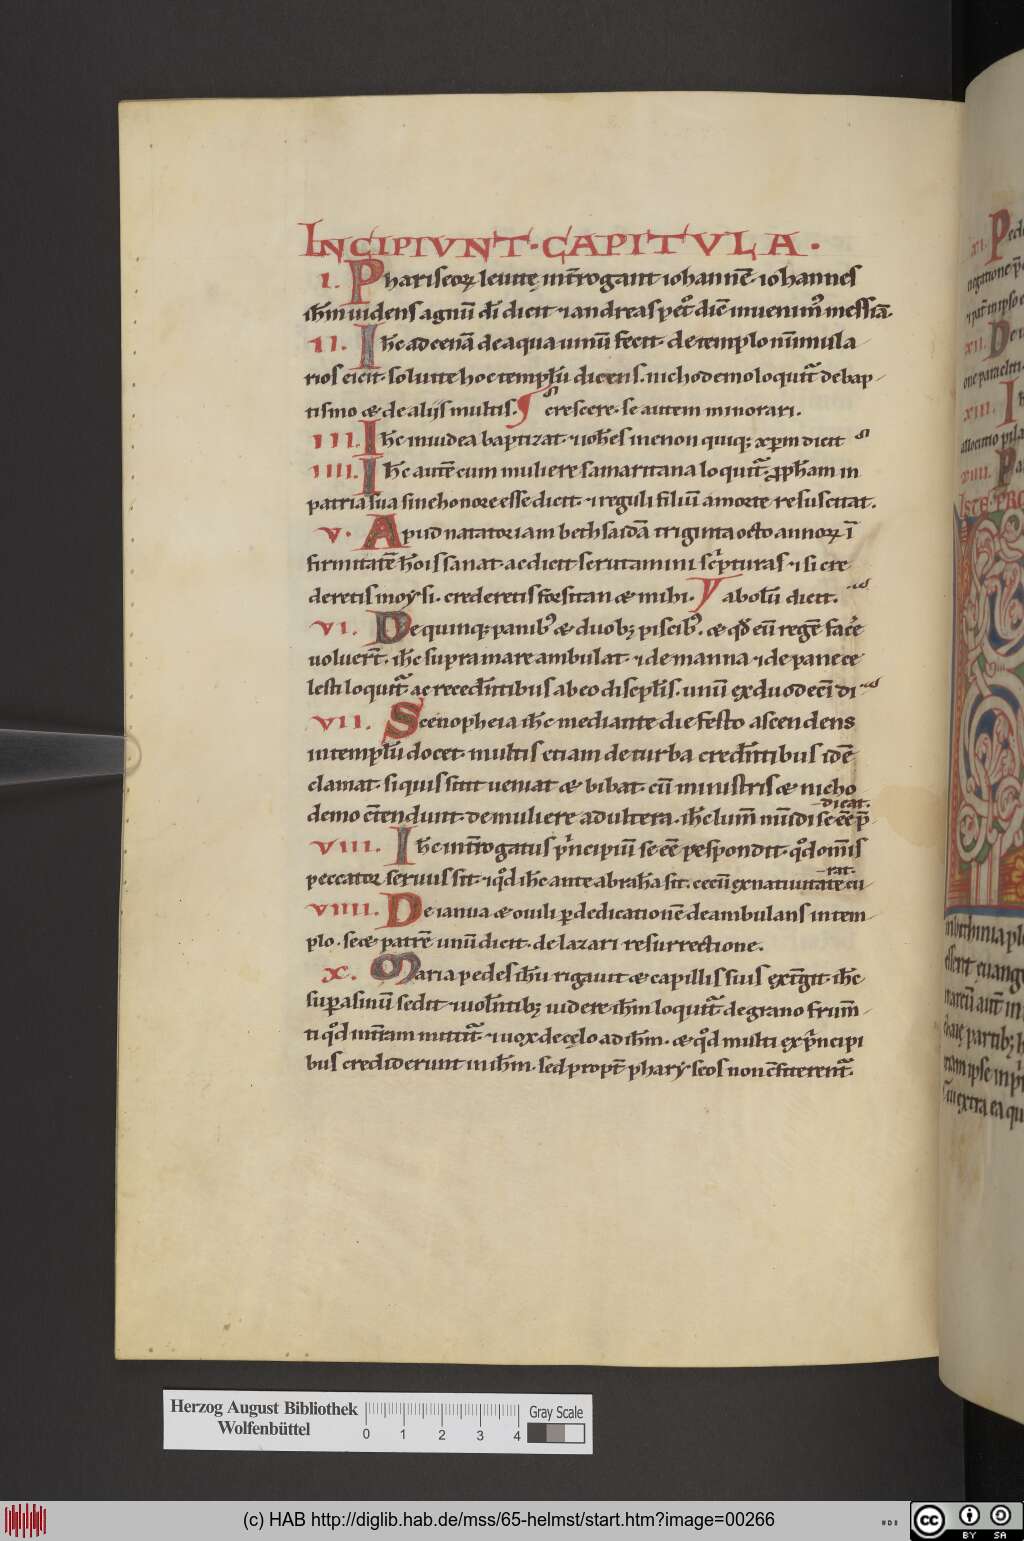 INCIPIVNT·CAPITVLA·
I. Phariseoꝝ leuitę int̄rogant iohannē· iohannes
ih̄m uidens agnū dī dicit ⁊andreas pet᷒ diē inuenim᷒ messiā.
II. Ih̄c ad cenā de aqua uinū fecit· de templo nūmula
rios eicit· soluite hoc templū dicens. nichodemo loquit̄ de bap-
tismo & de aliis multis. crescere· se autem minorari.
III. Ih̄c in iudea baptizat· ⁊ioh̄es in enon quiq; xp̄m dicit
IIII. Ih̄c autē cum muliere samaritana loquit̄· ꝓph̄am in
patria sua sine honore esse dicit· ⁊reguli filiū a morte resuscitat.
V. Apud natatoriam bethsaidā triginta octo annoꝝ ī
firmitatē h̄ois sanat· ac dicit scrutamini sc̄pturas ⁊si cre
deretis moysi· crederetis forsitan & mihi. abolū dicit.
VI. De quinq; panib᷒ & duob; piscib᷒. & qd̄ eū regē facēe
uoluer̄t· ih̄c supra mare ambulat ⁊de manna ⁊de pane ce
lesti loquit̄ ac recedētibus ab eo discipl̄is. unū ex duodecī di-
VII. Scenopheia ih̄c mediante die festo ascendens
in templū docet· multis etiam de turba credētibus idē
clamat· siquis sitit ueniat & bibat· cū ministris & nicho
dicat.
demo c̄tendunt· de muliere adultera. ih̄c lum̄ mūdi se ēe p̄
VIII. Ih̄c int̄rogatus p̄ncipiū se ēe respondit· qd̄ om̄is
rat.
peccator seruus sit ⁊qd̄ ih̄c ante abrah̄a sit. cecū ex natiuitate cu-
VIIII. De ianua & ouili ꝑ dedicationē deambulans in tem-
plo· se & patrē unū dicit· de lazari resurrectione.
X. Maria pedes ih̄u rigauit & capillis suis extīgit ih̄c
super asinū sedit ⁊uolētib; uidere ih̄m loquit̄ de grano frum̄-
ti qd̄ in t̄ram mittit̄ ⁊uox de cęlo ad ih̄m· & qd̄ multi ex p̄ncipi
bus crediderunt in ih̄m· sed propt̄ pharyseos non c̄fiterent̄.
Herzog August Bibliothek
Wolfenbüttel
0 1 2 3 4
Gray Scale
(c) HAB http://diglib.hab.de/mss/65-helmst/start.htm?image=00266
cc BY SA